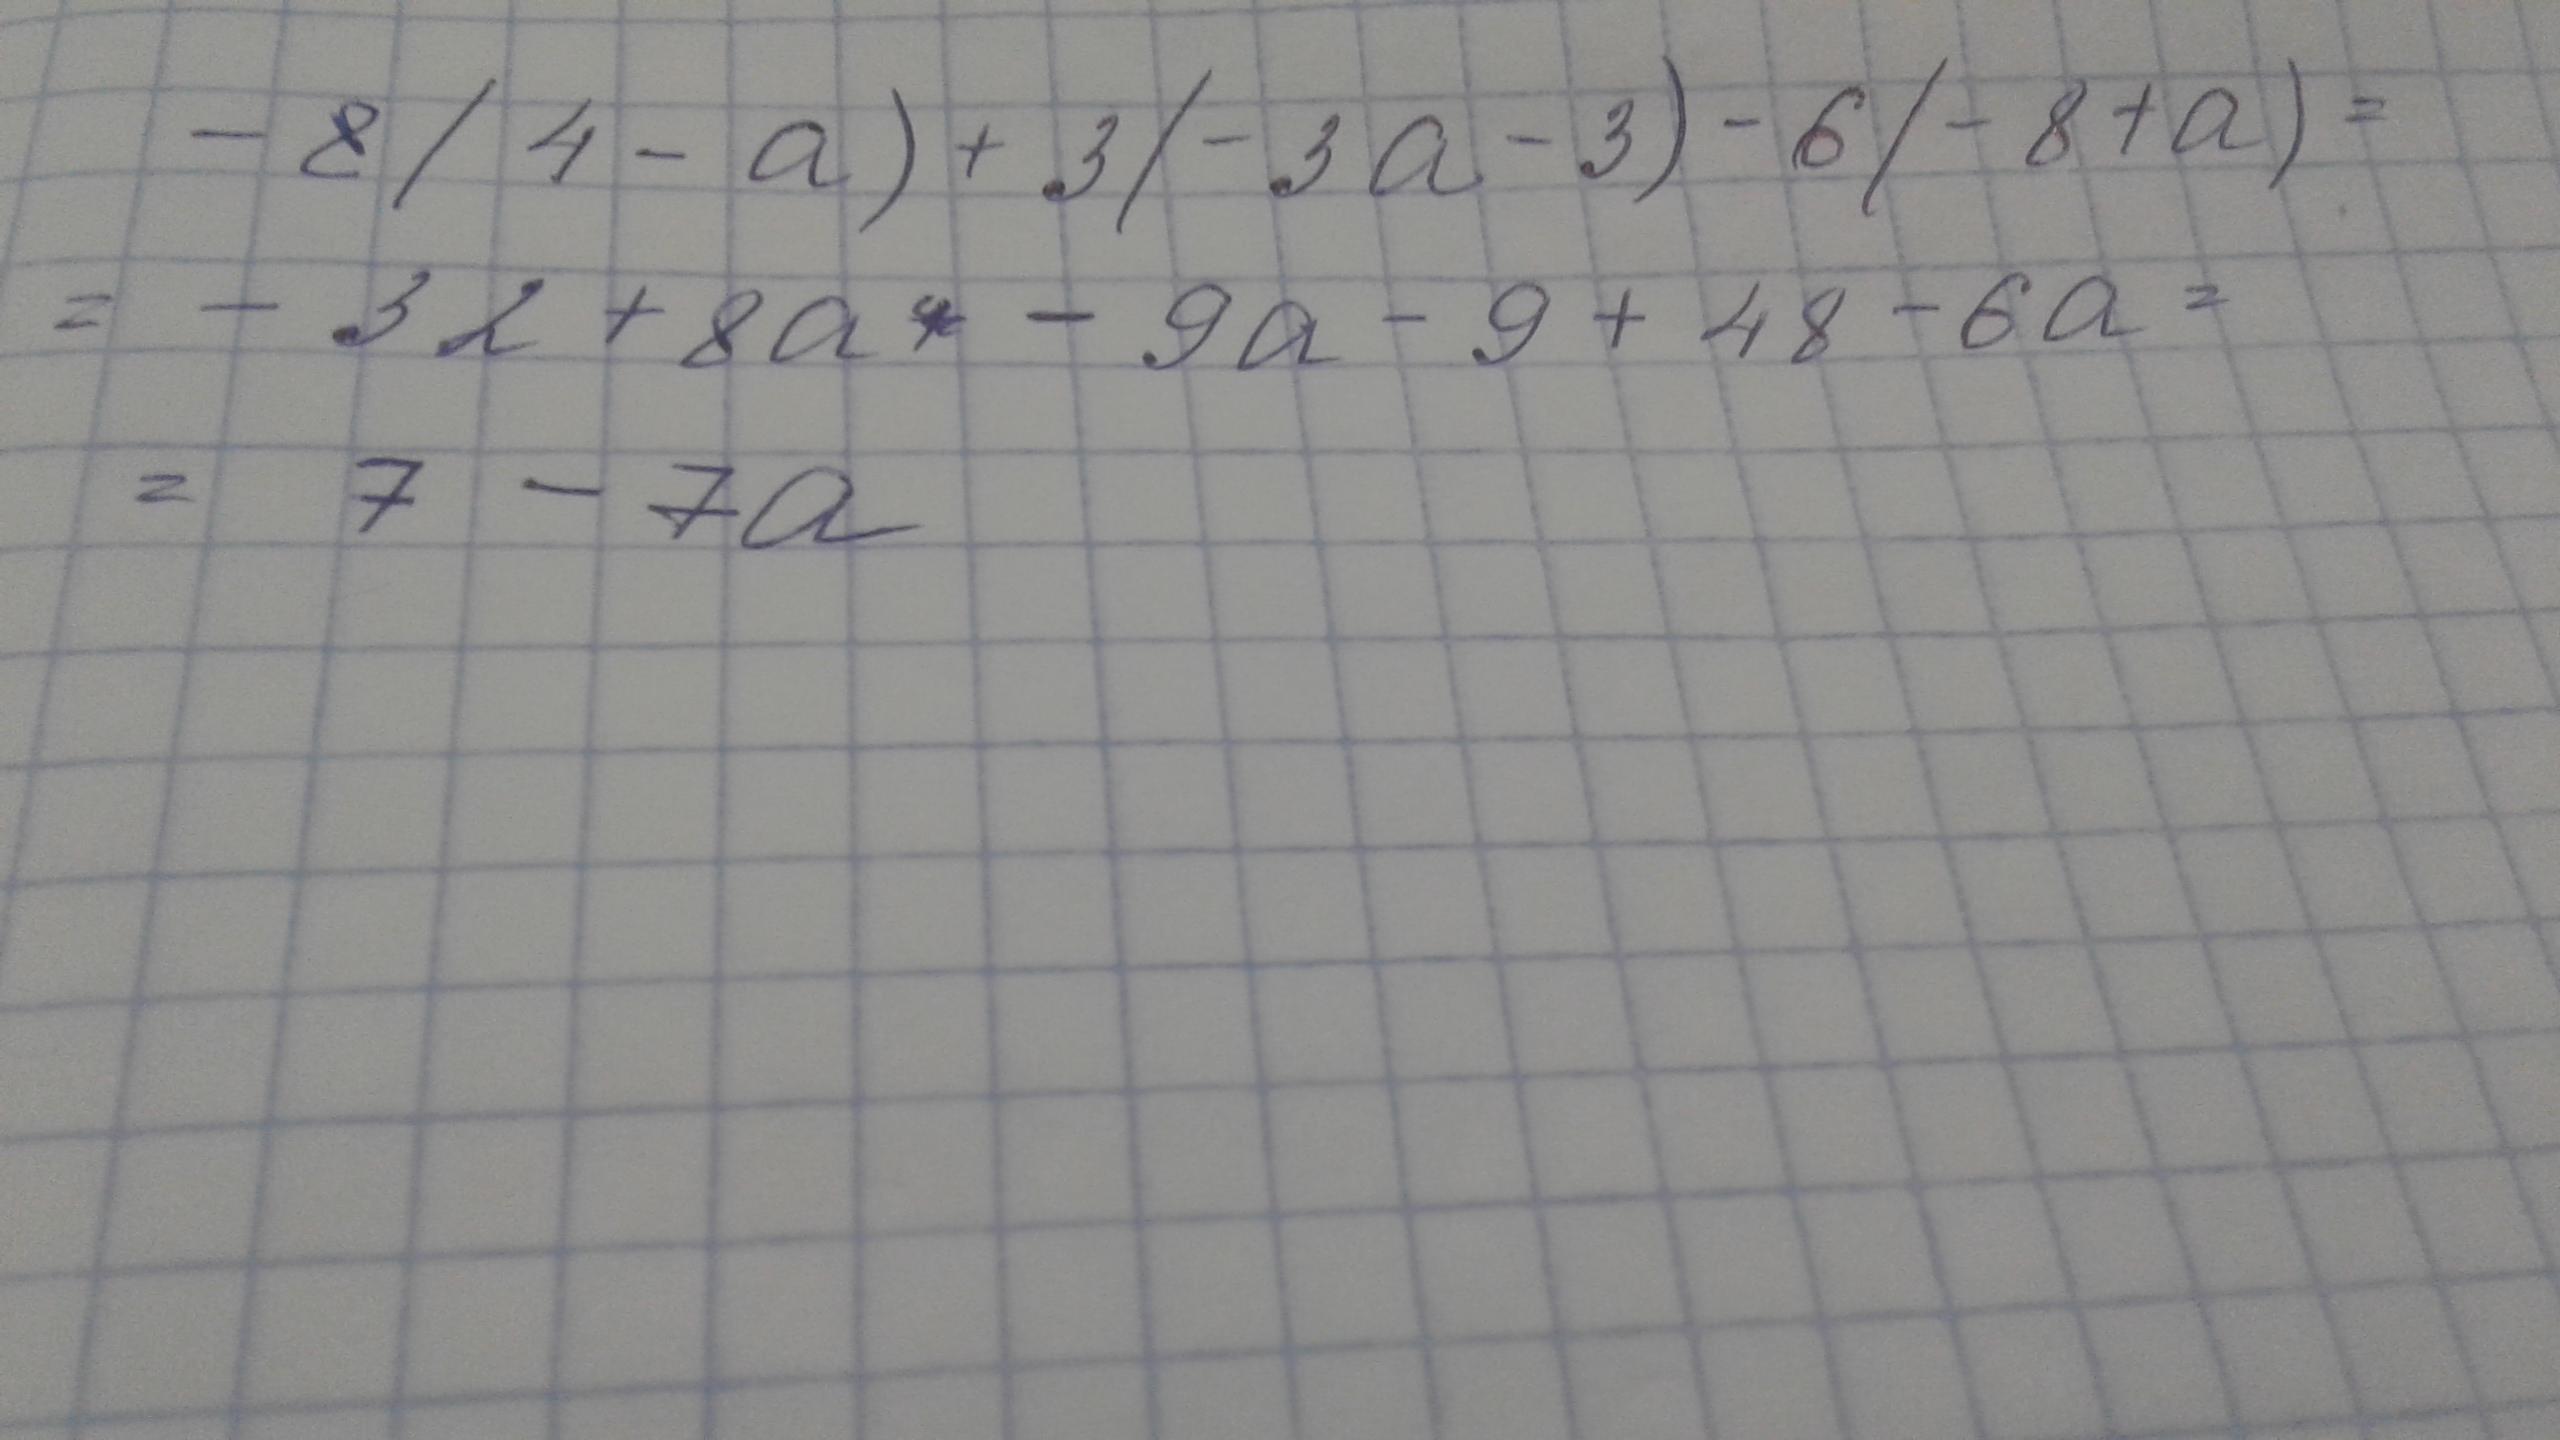 - 8(4 - a) + 3(-3a - 3) - 6(-8 + a) =
= - 32 + 8a - 9a - 9 + 48 - 6a =
= 7 - 7a